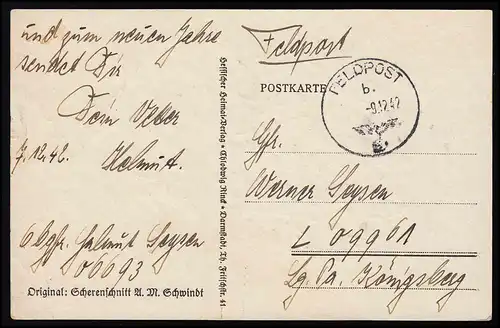 und zum neuen Jahre
sendet Dir
Dein Vetter
7.12.42. Helmut.
O'Bgfr. Helmut Seysen
06693
Original: Scherenschnitt A. M. Schwindt
Hessischer Heimat-Verlag • Chlodwig Rinck • Darmstadt, Th. Fritschstr. 41
Feldpost
POSTKARTE
FELDPOST
b.
-9.12.42
Gfr.
Werner Seysen
L 09961
Lg.Pa. Königsberg